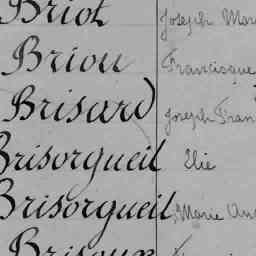 Briot Joseph
Briou Francisque
Brisard Joseph
Brisorgueil Elie
Brisorgueil Marie